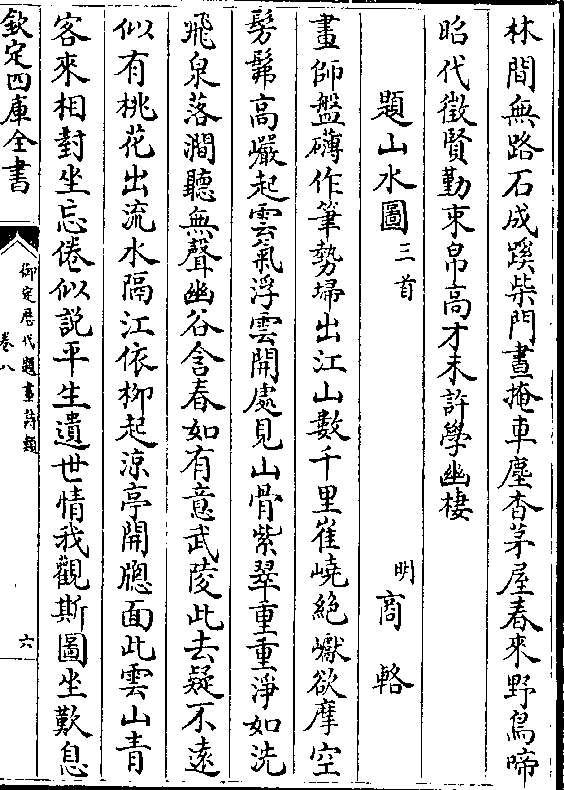 林間無路石成蹊柴門晝掩車塵杳茅屋春來野鳥啼
昭代徵賢勤束帛高才未許學幽棲
題山水圖三首 明商輅
畫師盤礴作筆勢埽出江山數千里崔嶢絶巘欲摩空
髣髴高巖起雲氣浮雲開處見山骨紫翠重重淨如洗
飛泉落澗聽無聲幽谷含春如有意武陵此去疑不遠
似有桃花出流水隔江依柳起涼亭開牕面此雲山青
客來相對坐忘倦似説平生遺世情我觀斯圖坐歎息
欽定四庫全書
御定歷代題畫詩類
卷八
六